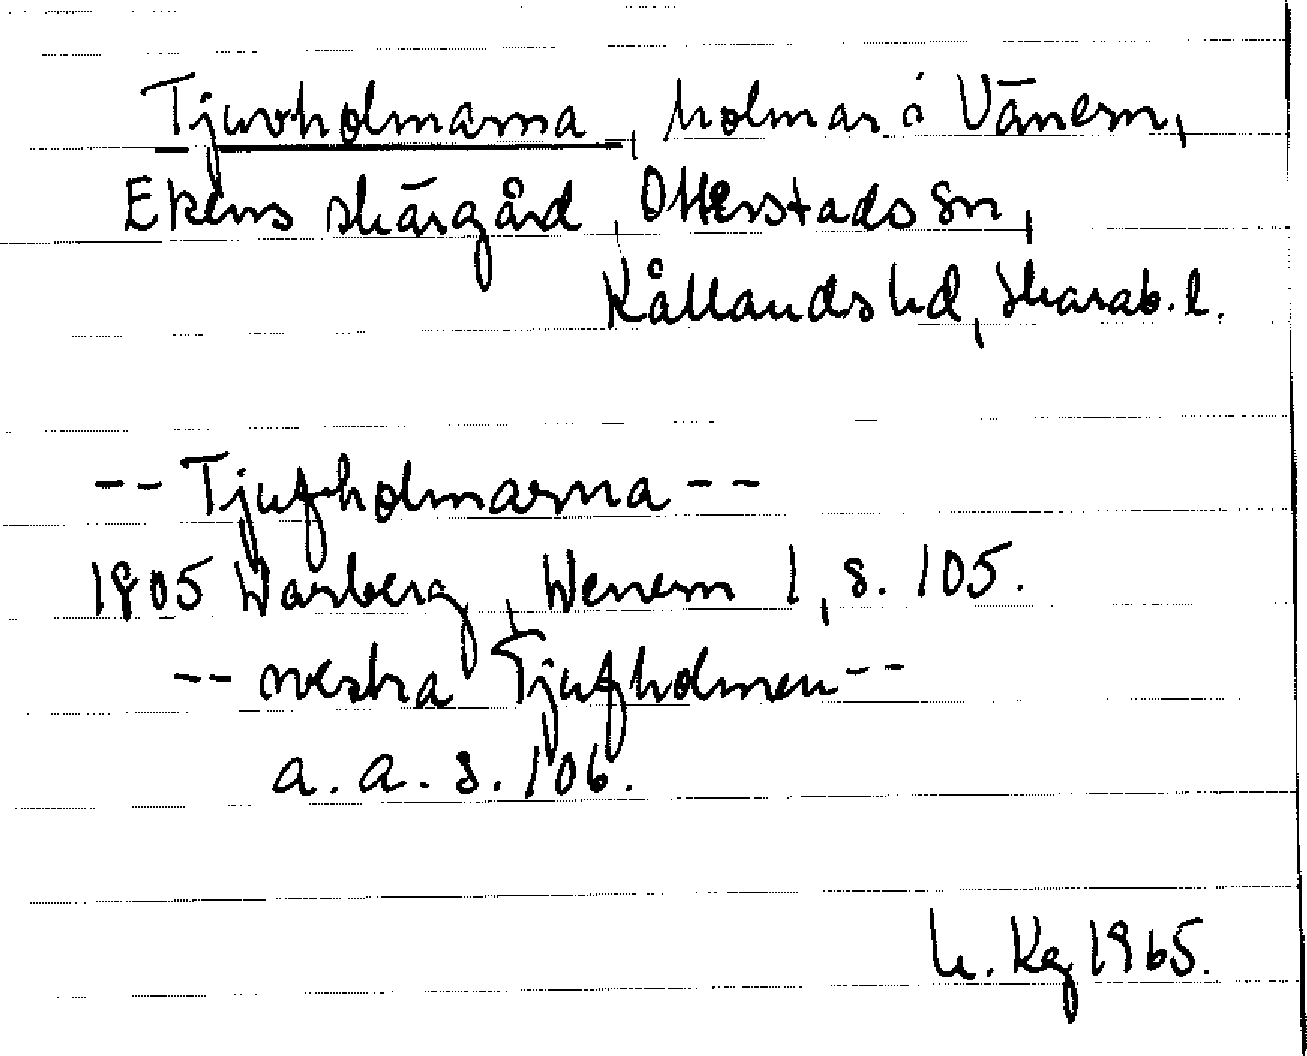 Tjuvholmarna, holmar i Vänern,
Ekens skärgård, Otterstads sn,
Kållands hd, Skarab. l.
-- Tjufholmarna --
1905 Warberg, Wenern 1, s. 105.
-- westra Tjufholmen --
a. a. s. 106.
h. Kg 1965.